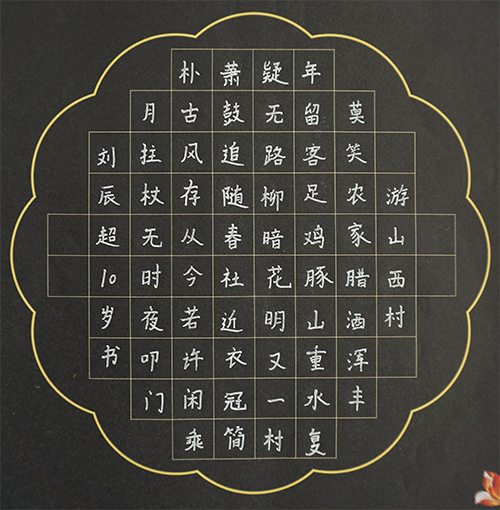 游山西村
莫笑农家腊酒浑丰
年留客足鸡豚山重水复
疑无路柳暗花明又一村
萧鼓追随春社近衣冠简
朴古风存从今若许闲乘
月拄杖无时夜叩门
刘辰超10岁书